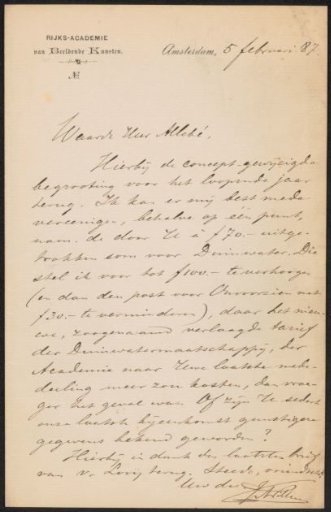 RIJKS-ACADEMIE
van Beeldende Kunsten.
No
Amsterdam, 5 februari 87.
Waarde Heer Allebé,
Hierbij de concept-gewijzigde
begrooting voor het loopende jaar
terug. Ik kan er mij best mede
vereenigen, behalve op één punt,
nam. de door U à f70.- uitge-
trokken som voor Duinwater. Die
stel ik voor tot f100.- te verhoogen
(en dan den post voor Onvoorzien met
f30.- te verminderen), daar het nieu-
we, zoogenaamd verlaagde tarief
der Duinwatermaatschappij, der
Academie naar Uwe laatste mede-
deeling meer zou kosten, dan vroe-
ger het geval was. Of zijn U sedert
onze laatste bijeenkomst gunstiger
gegevens bekend geworden?
Hierbij in dank den laatsten brief
van v. Looy terug. Steeds, vriendsch.
Uw dr.